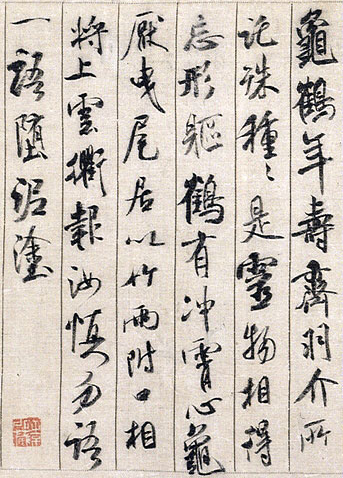 龜鶴年壽齊羽介所
託殊種〻是靈物相得
忘形軀鶴有冲霄心龜
厭曳尾居以竹兩附口相
將上雲衢報汝慎勿語
一語墮泥塗